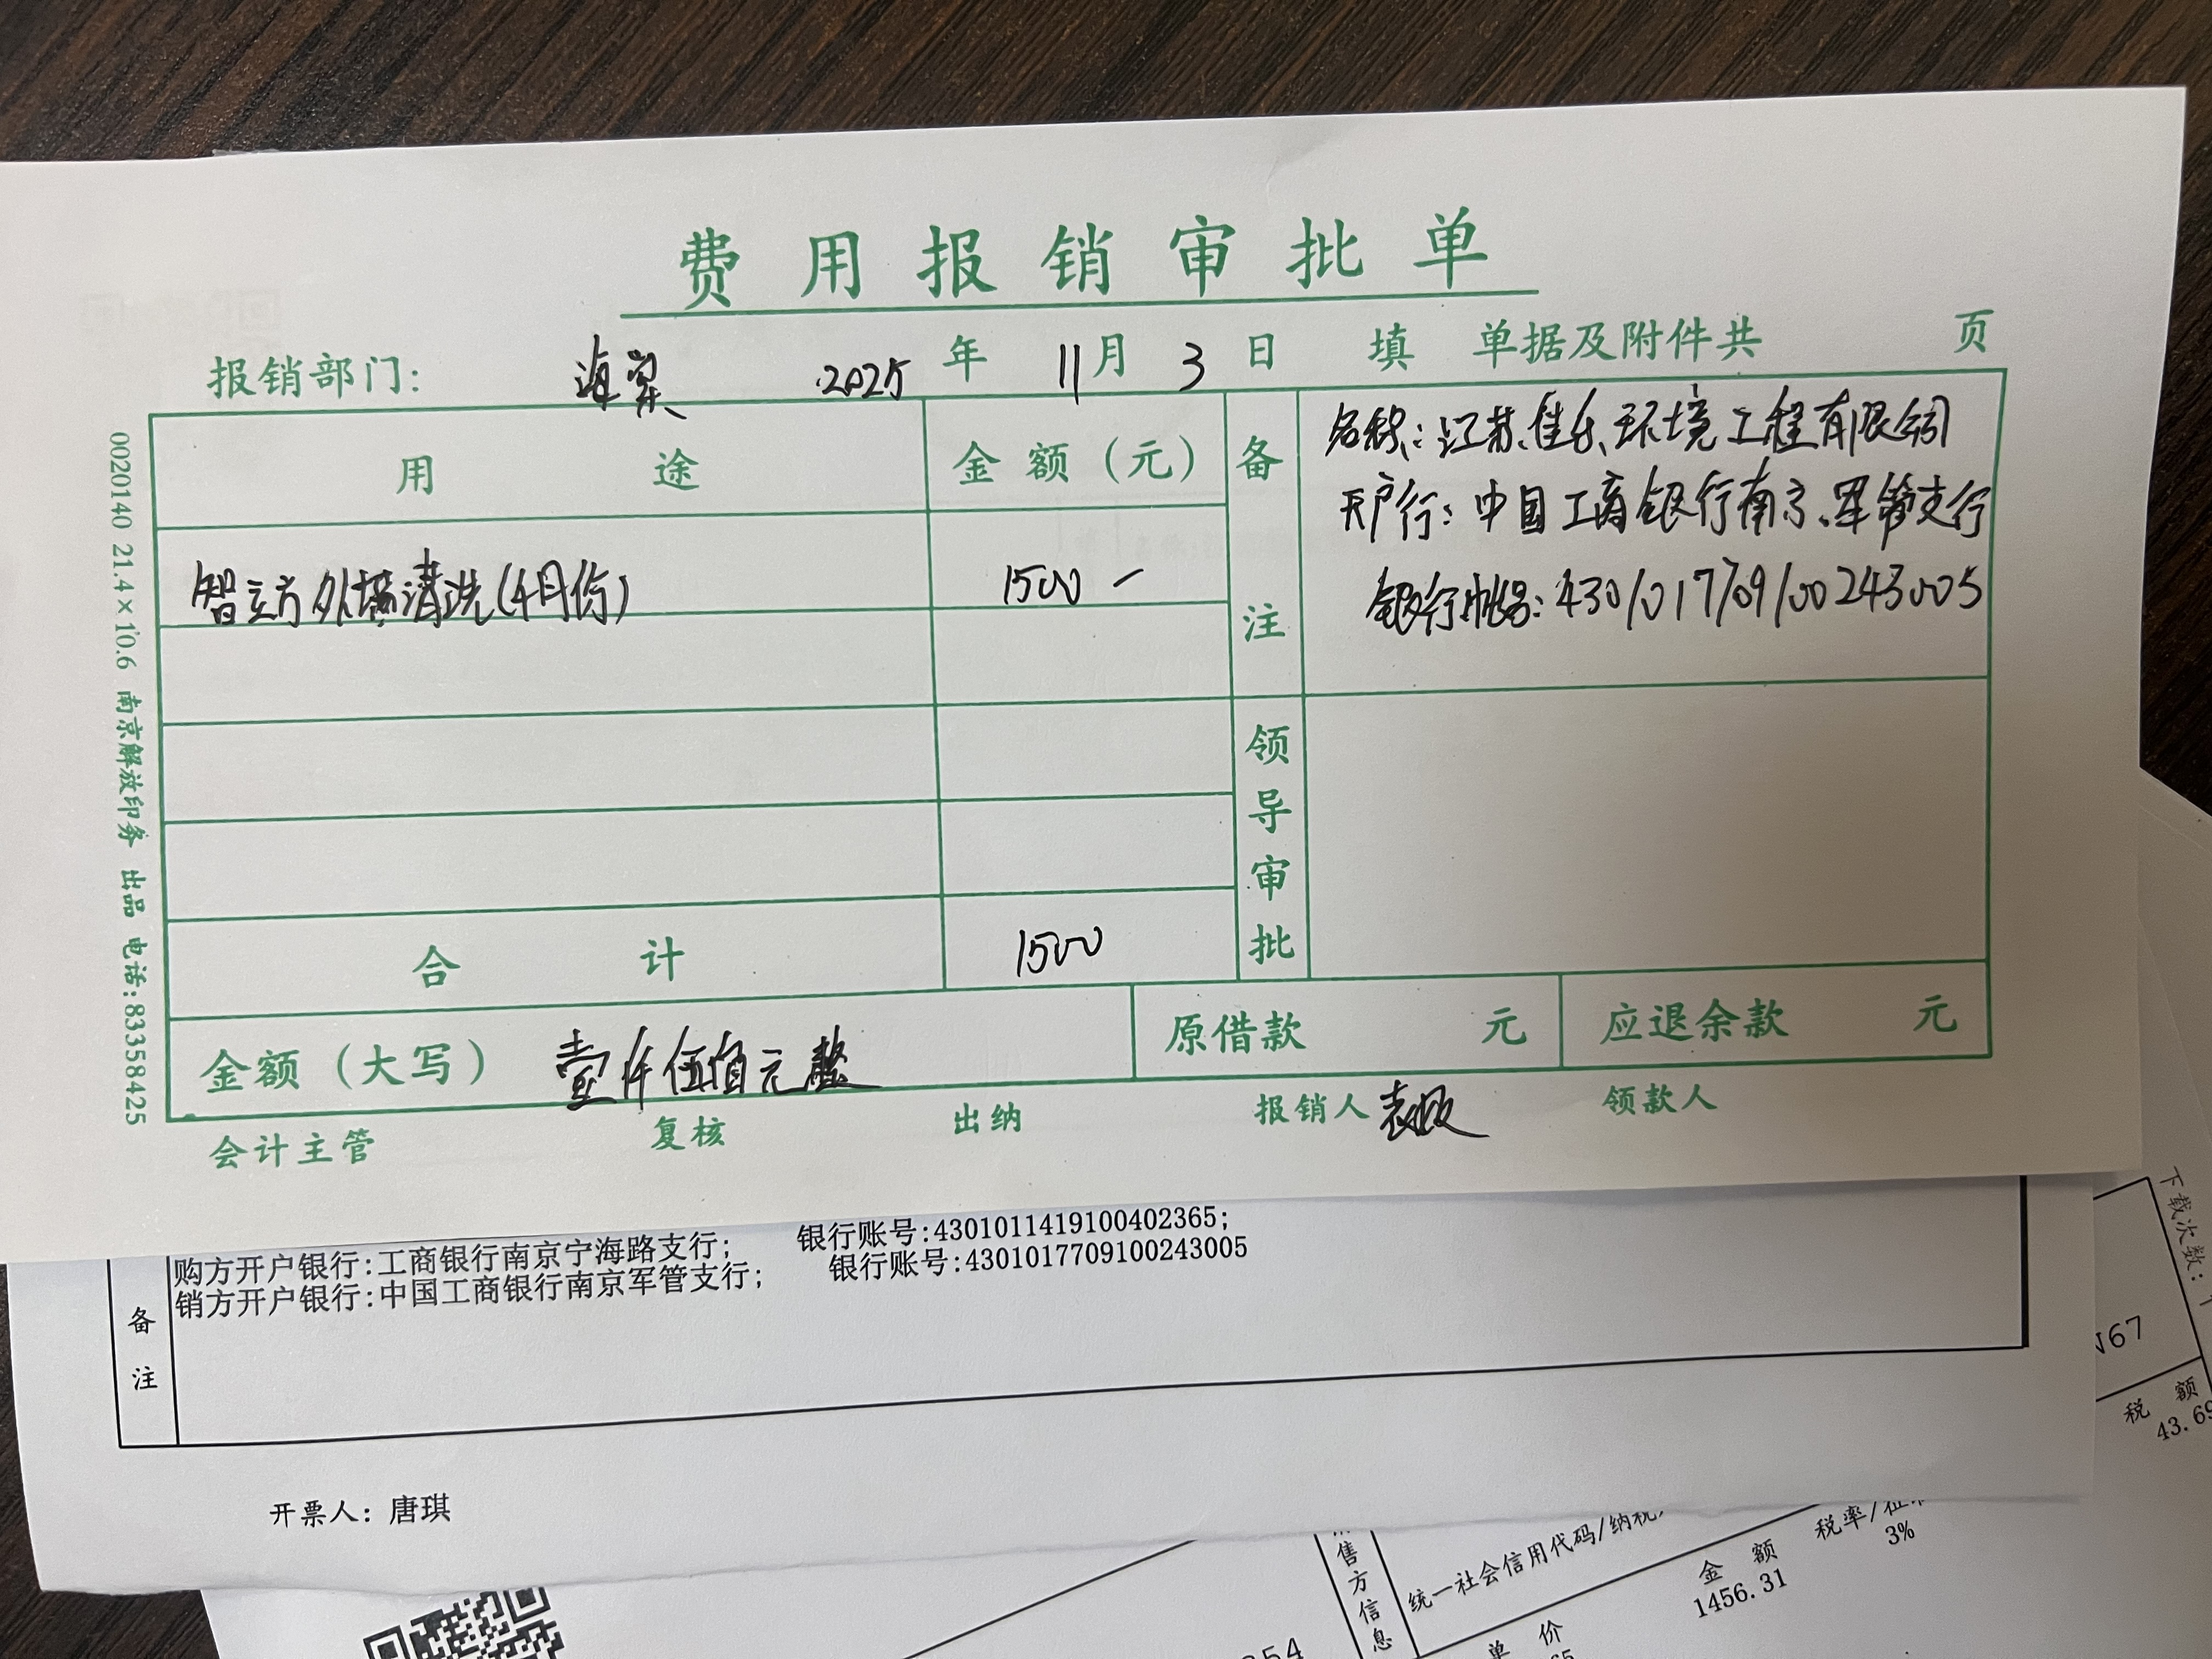 费用报销审批单
报销部门: 海棠 2025年 11月 3日 填 单据及附件共 页
用途 金额(元) 备注
名称:江苏佳乐环境工程有限公司
开户行:中国工商银行南京军管支行
银行帐号:4301017709100243005
智立方外墙清洗(4月份) 1500 -
领导审批
合计 1500
金额(大写) 壹仟伍佰元整 原借款 元 应退余款 元
会计主管 复核 出纳 报销人 领款人
0020140 21.4×10.6 南京解放印务 出品 电话:83358425
购方开户银行:工商银行南京宁海路支行; 银行账号:4301011419100402365;
销方开户银行:中国工商银行南京军管支行; 银行账号:4301017709100243005
备注
开票人: 唐琪
下载次数:
67
税额
43.69
售方信息
统一社会信用代码/纳税
金额 税率/征
1456.31 3%
单价